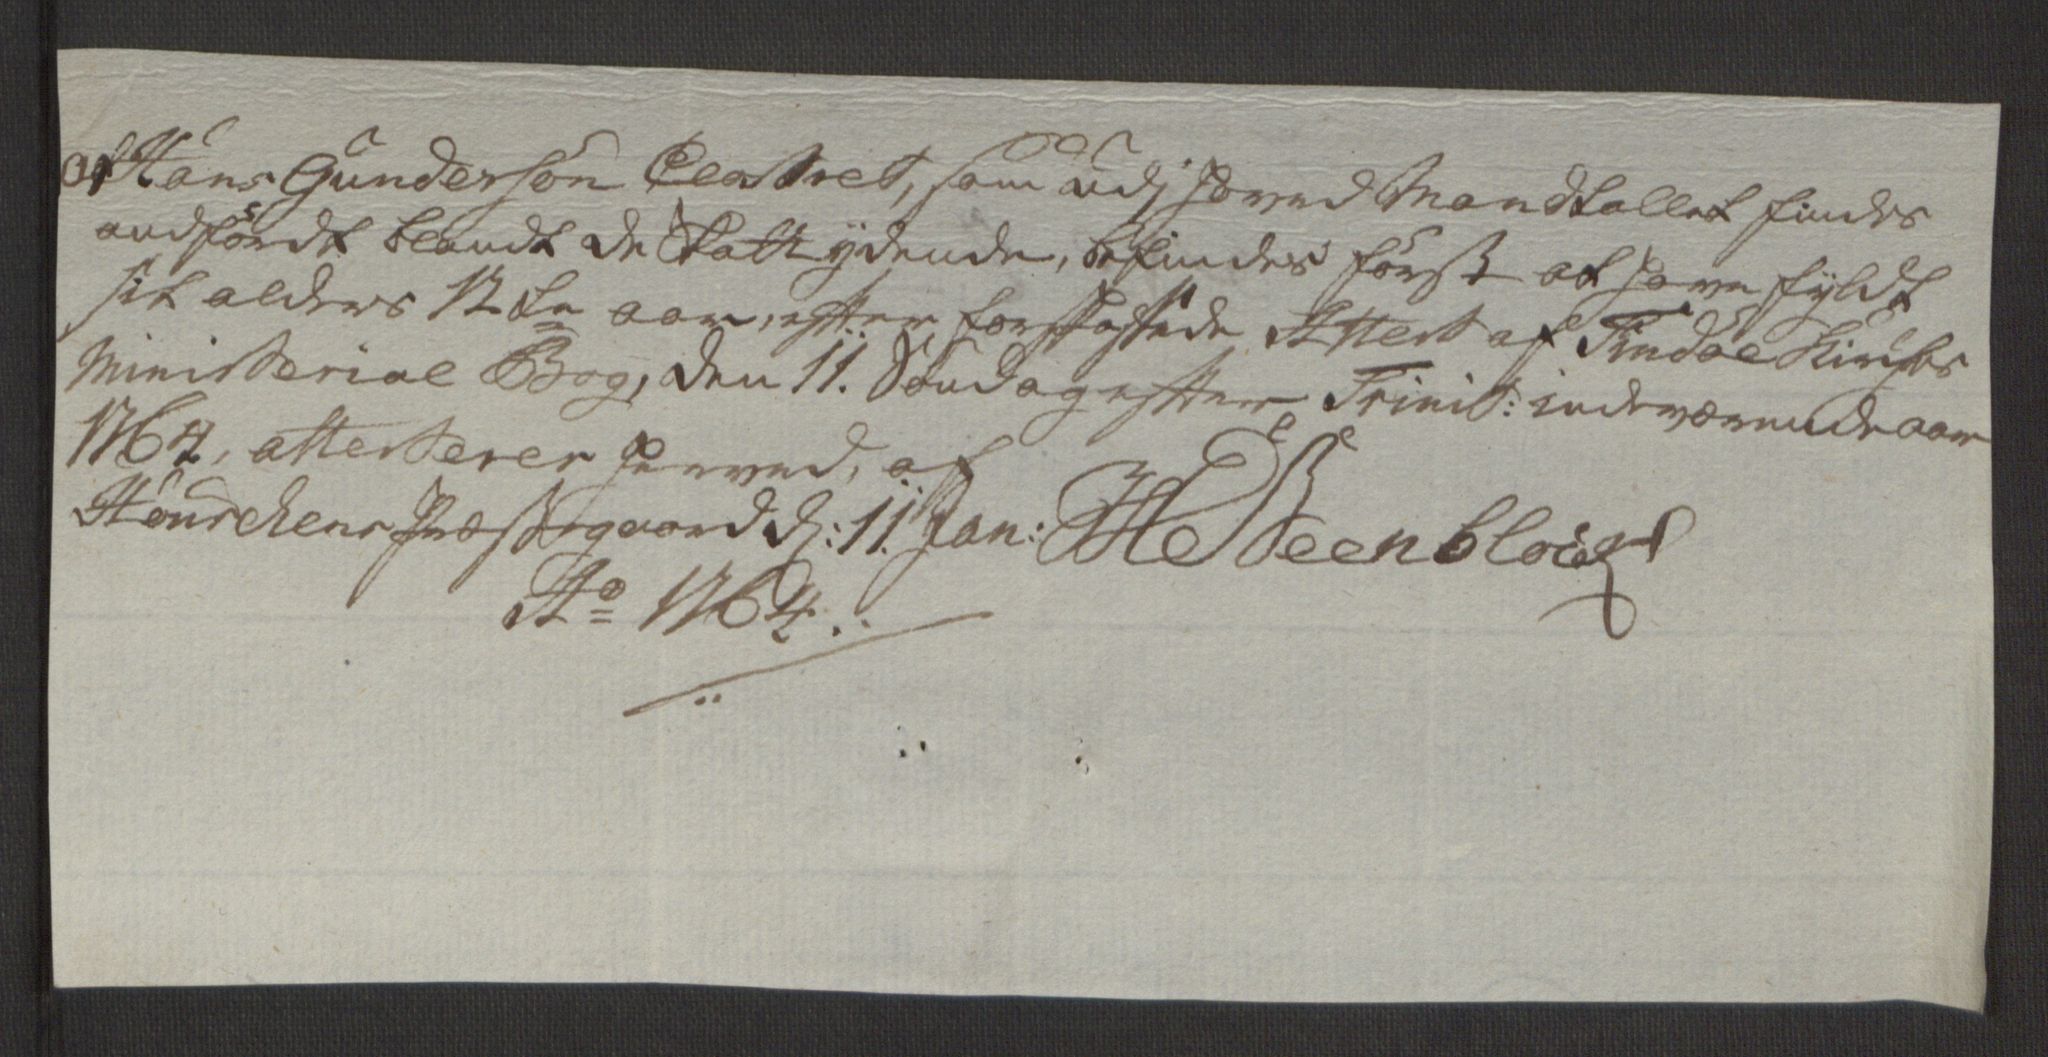 at Hans Gunderson Clastret, som udj hoved Mandtallet findes
andfördt blandt de Skatt ydende, befindes först at have fyldt
sit alders 12te aar, efter forskaffede Attest af Tindøe Kirkes
Ministerial Bog, den 11. Søndag efter Trinit: indeværende aar
1764, attesterer herved, af
Præstegaard d: 11. Jan: HSteenbloch
Ao 1764.